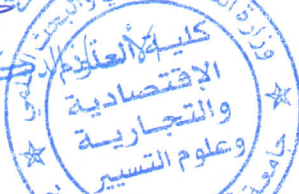 كلية العلوم
الإقتصادية
والتجارية
وعلوم التسيير
وزارة
جامعة